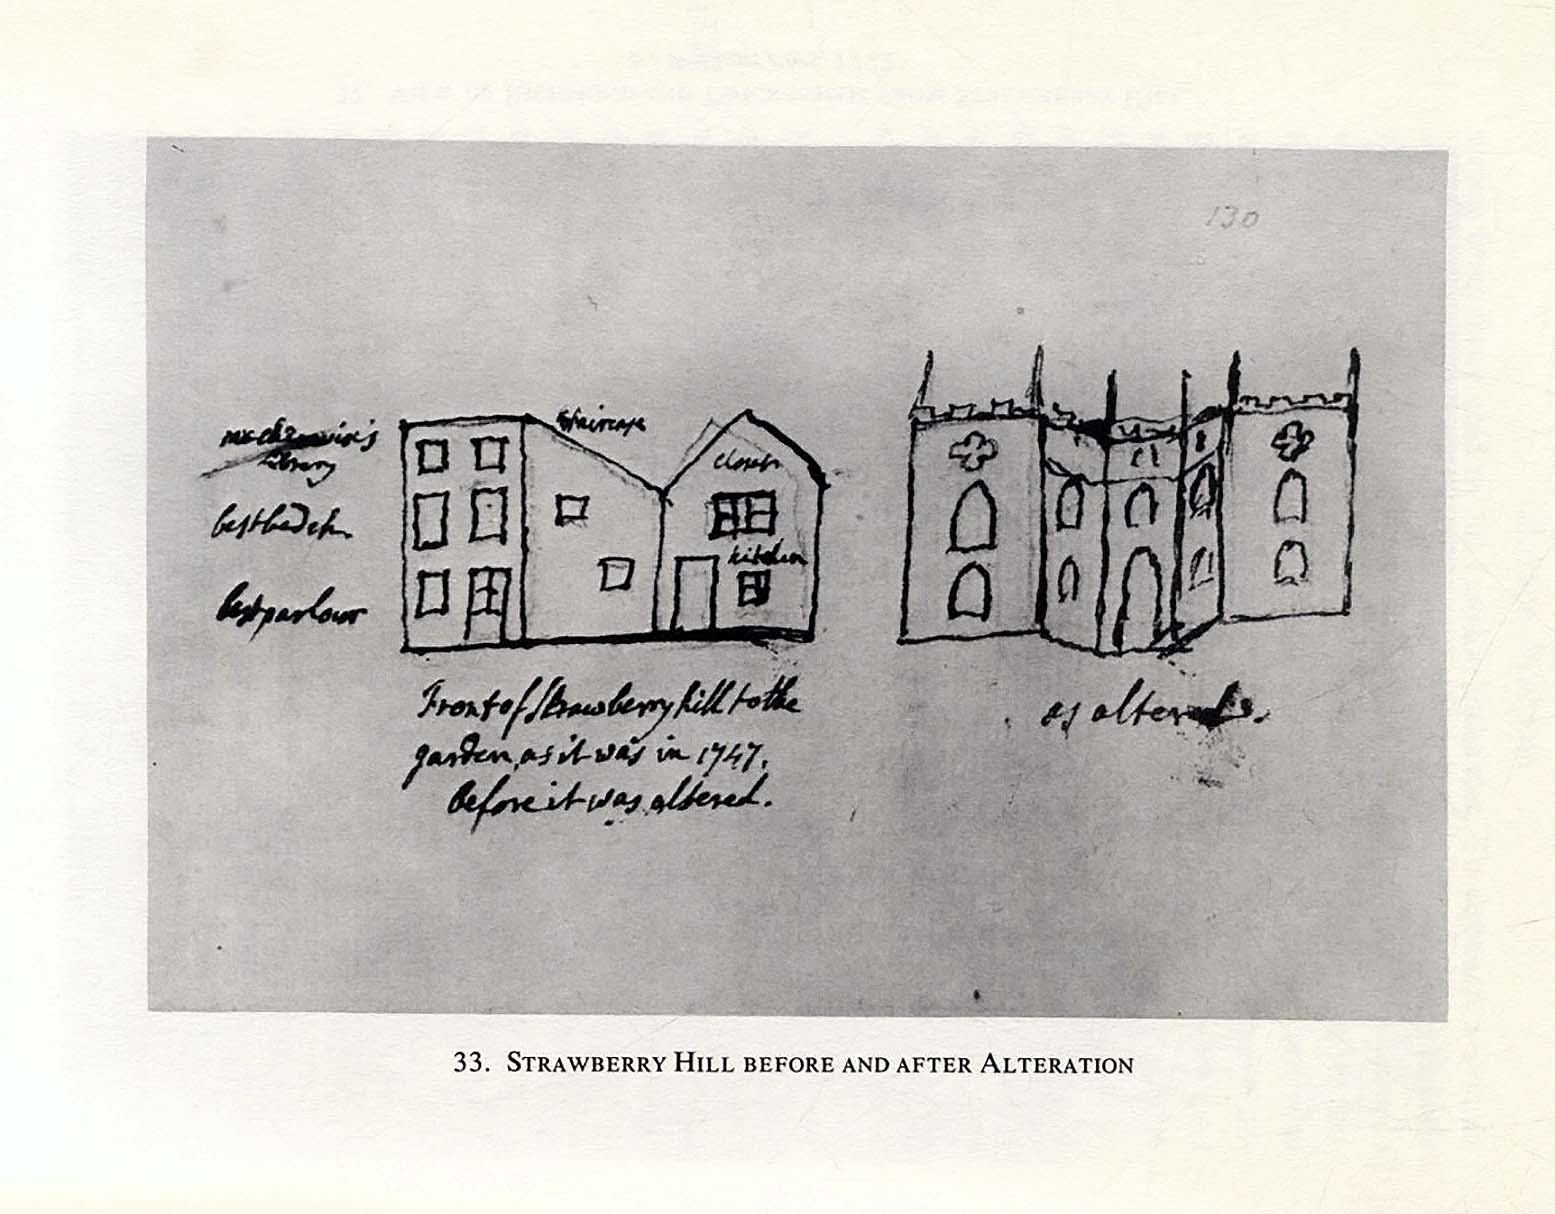 130
mr chenevix's
library
staircase
closet
best bed ch.
kitchen
best parlour
Front of Strawberry hill to the
garden, as it was in 1747.
before it was altered.
as altered.
33. STRAWBERRY HILL BEFORE AND AFTER ALTERATION